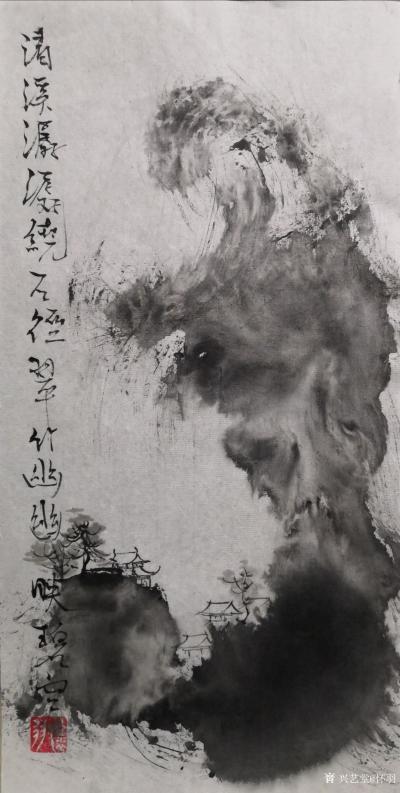 清溪潺潺绕石径翠竹幽幽映碧空
兴艺堂画怀羽